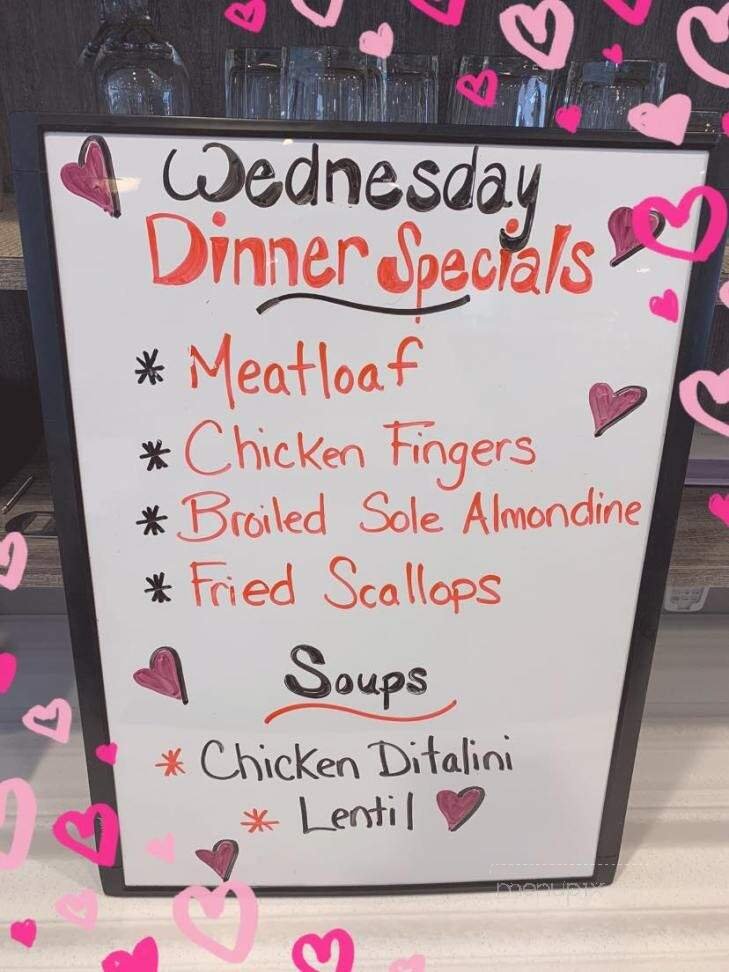 Wednesday
Dinner Specials
* Meatloaf
* Chicken Fingers
* Broiled Sole Almondine
* Fried Scallops
Soups
* Chicken Ditalini
* Lentil
menupix